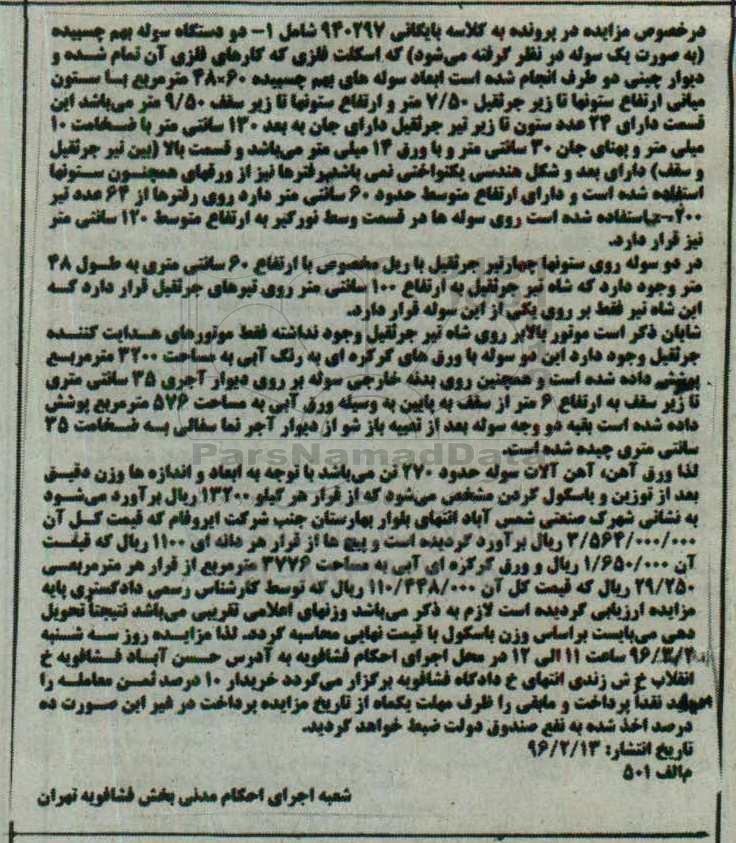 درخصوص مزایده در پرونده به کلاسه بایگانی ۹۴۰۲۹۷ شامل ۱- دو دستگاه سوله بهم چسبیده
(به صورت یک سوله در نظر گرفته می‌شود) که اسکلت فلزی که کارهای فلزی آن تمام شده و
دیوار چینی دو طرف انجام شده است ابعاد سوله های بهم چسبیده ۶۰×۴۸ مترمربع با ستون
میانی ارتفاع ستونها تا زیر جرثقیل ۷/۵۰ متر و ارتفاع ستونها تا زیر سقف ۹/۵۰ متر می‌باشد این
قسمت دارای ۲۴ عدد ستون تا زیر تیر جرثقیل دارای جان به بعد ۱۳۰ سانتی متر با ضخامت ۱۰
میلی متر و پهنای جان ۳۰ سانتی متر و با ورق ۱۴ میلی متر می‌باشد و قسمت بالا (بین تیر جرثقیل
و سقف) دارای بعد و شکل هندسی یکنواختی نمی باشد رفترها نیز از ورقهای همچنون ستونها
استفاده شده است و دارای ارتفاع متوسط حدود ۶۰ سانتی متر دارد روی رفترها از ۶۴ عدد تیر
استفاده شده است روی سوله ها در قسمت وسط نورگیر به ارتفاع متوسط ۱۲۰ سانتی متر
نیز قرار دارد.
در دو سوله روی ستونها چهارتیر جرثقیل با ریل مخصوص با ارتفاع ۶۰ سانتی متری به طول ۴۸
متر وجود دارد که شاه تیر جرثقیل به ارتفاع ۱۰۰ سانتی متر روی تیرهای جرثقیل قرار دارد که
این شاه تیر فقط بر روی یکی از این سوله قرار دارد.
شایان ذکر است موتور بالابر روی شاه تیر جرثقیل وجود نداشته فقط موتورهای هدایت کننده
جرثقیل وجود دارد این دو سوله با ورق های گرگره ای به رنگ آبی به مساحت ۳۲۰۰ مترمربع
پوشش داده شده است و همچنین روی بدنه خارجی سوله بر روی دیوار آجری ۳۵ سانتی متری
تا زیر سقف به ارتفاع ۶ متر از سقف به پایین به وسیله ورق آبی به مساحت ۵۷۶ مترمربع پوشش
داده شده است بقیه دو وجه سوله بعد از تعبیه باز شو از دیوار آجر نما سفالی به ضخامت ۳۵
سانتی متری چیده شده است.
ParsNamadData
لذا ورق آهن، آهن آلات سوله حدود ۲۷۰ تن می‌باشد با توجه به ابعاد و اندازه ها وزن دقیق
بعد از توزین و باسکول کردن مشخص می‌شود که از قرار هر کیلو ۱۳۲۰۰ ریال برآورد می‌شود
به نشانی شهرک صنعتی شمس آباد انتهای بلوار بهارستان جنب شرکت ایروفام که قیمت کل آن
۳/۵۶۴/۰۰۰/۰۰۰ ریال برآورد گردیده است و پیچ ها از قرار هر دانه ای ۱۱۰۰ ریال که قیمت
آن ۱/۶۵۰/۰۰۰ ریال و ورق گرگره ای آبی به مساحت ۳۷۷۶ مترمربع از قرار هر مترمربعی
۲۹/۲۵۰ ریال که قیمت کل آن ۱۱۰/۴۴۸/۰۰۰ ریال که توسط کارشناس رسمی دادگستری پایه
مزایده ارزیابی گردیده است لازم به ذکر می‌باشد وزنهای اعلامی تقریبی می‌باشد نتیجتاً تحویل
دهی می‌بایست براساس وزن باسکول با قیمت نهایی محاسبه گردد. لذا مزایده روز سه شنبه
ساعت ۱۱ الی ۱۲ در محل اجرای احکام فشافویه به آدرس حسن آباد فشافویه خ
انقلاب خ ش زندی انتهای خ دادگاه فشافویه برگزار می‌گردد خریدار ۱۰ درصد ثمن معامله را
نقداً پرداخت و مابقی را ظرف مهلت یکماه از تاریخ مزایده پرداخت در غیر این صورت ده
درصد اخذ شده به نفع صندوق دولت ضبط خواهد گردید.
تاریخ انتشار: ۹۶/۲/۱۳
م‌الف ۵۰۱
شعبه اجرای احکام مدنی بخش فشافویه تهران